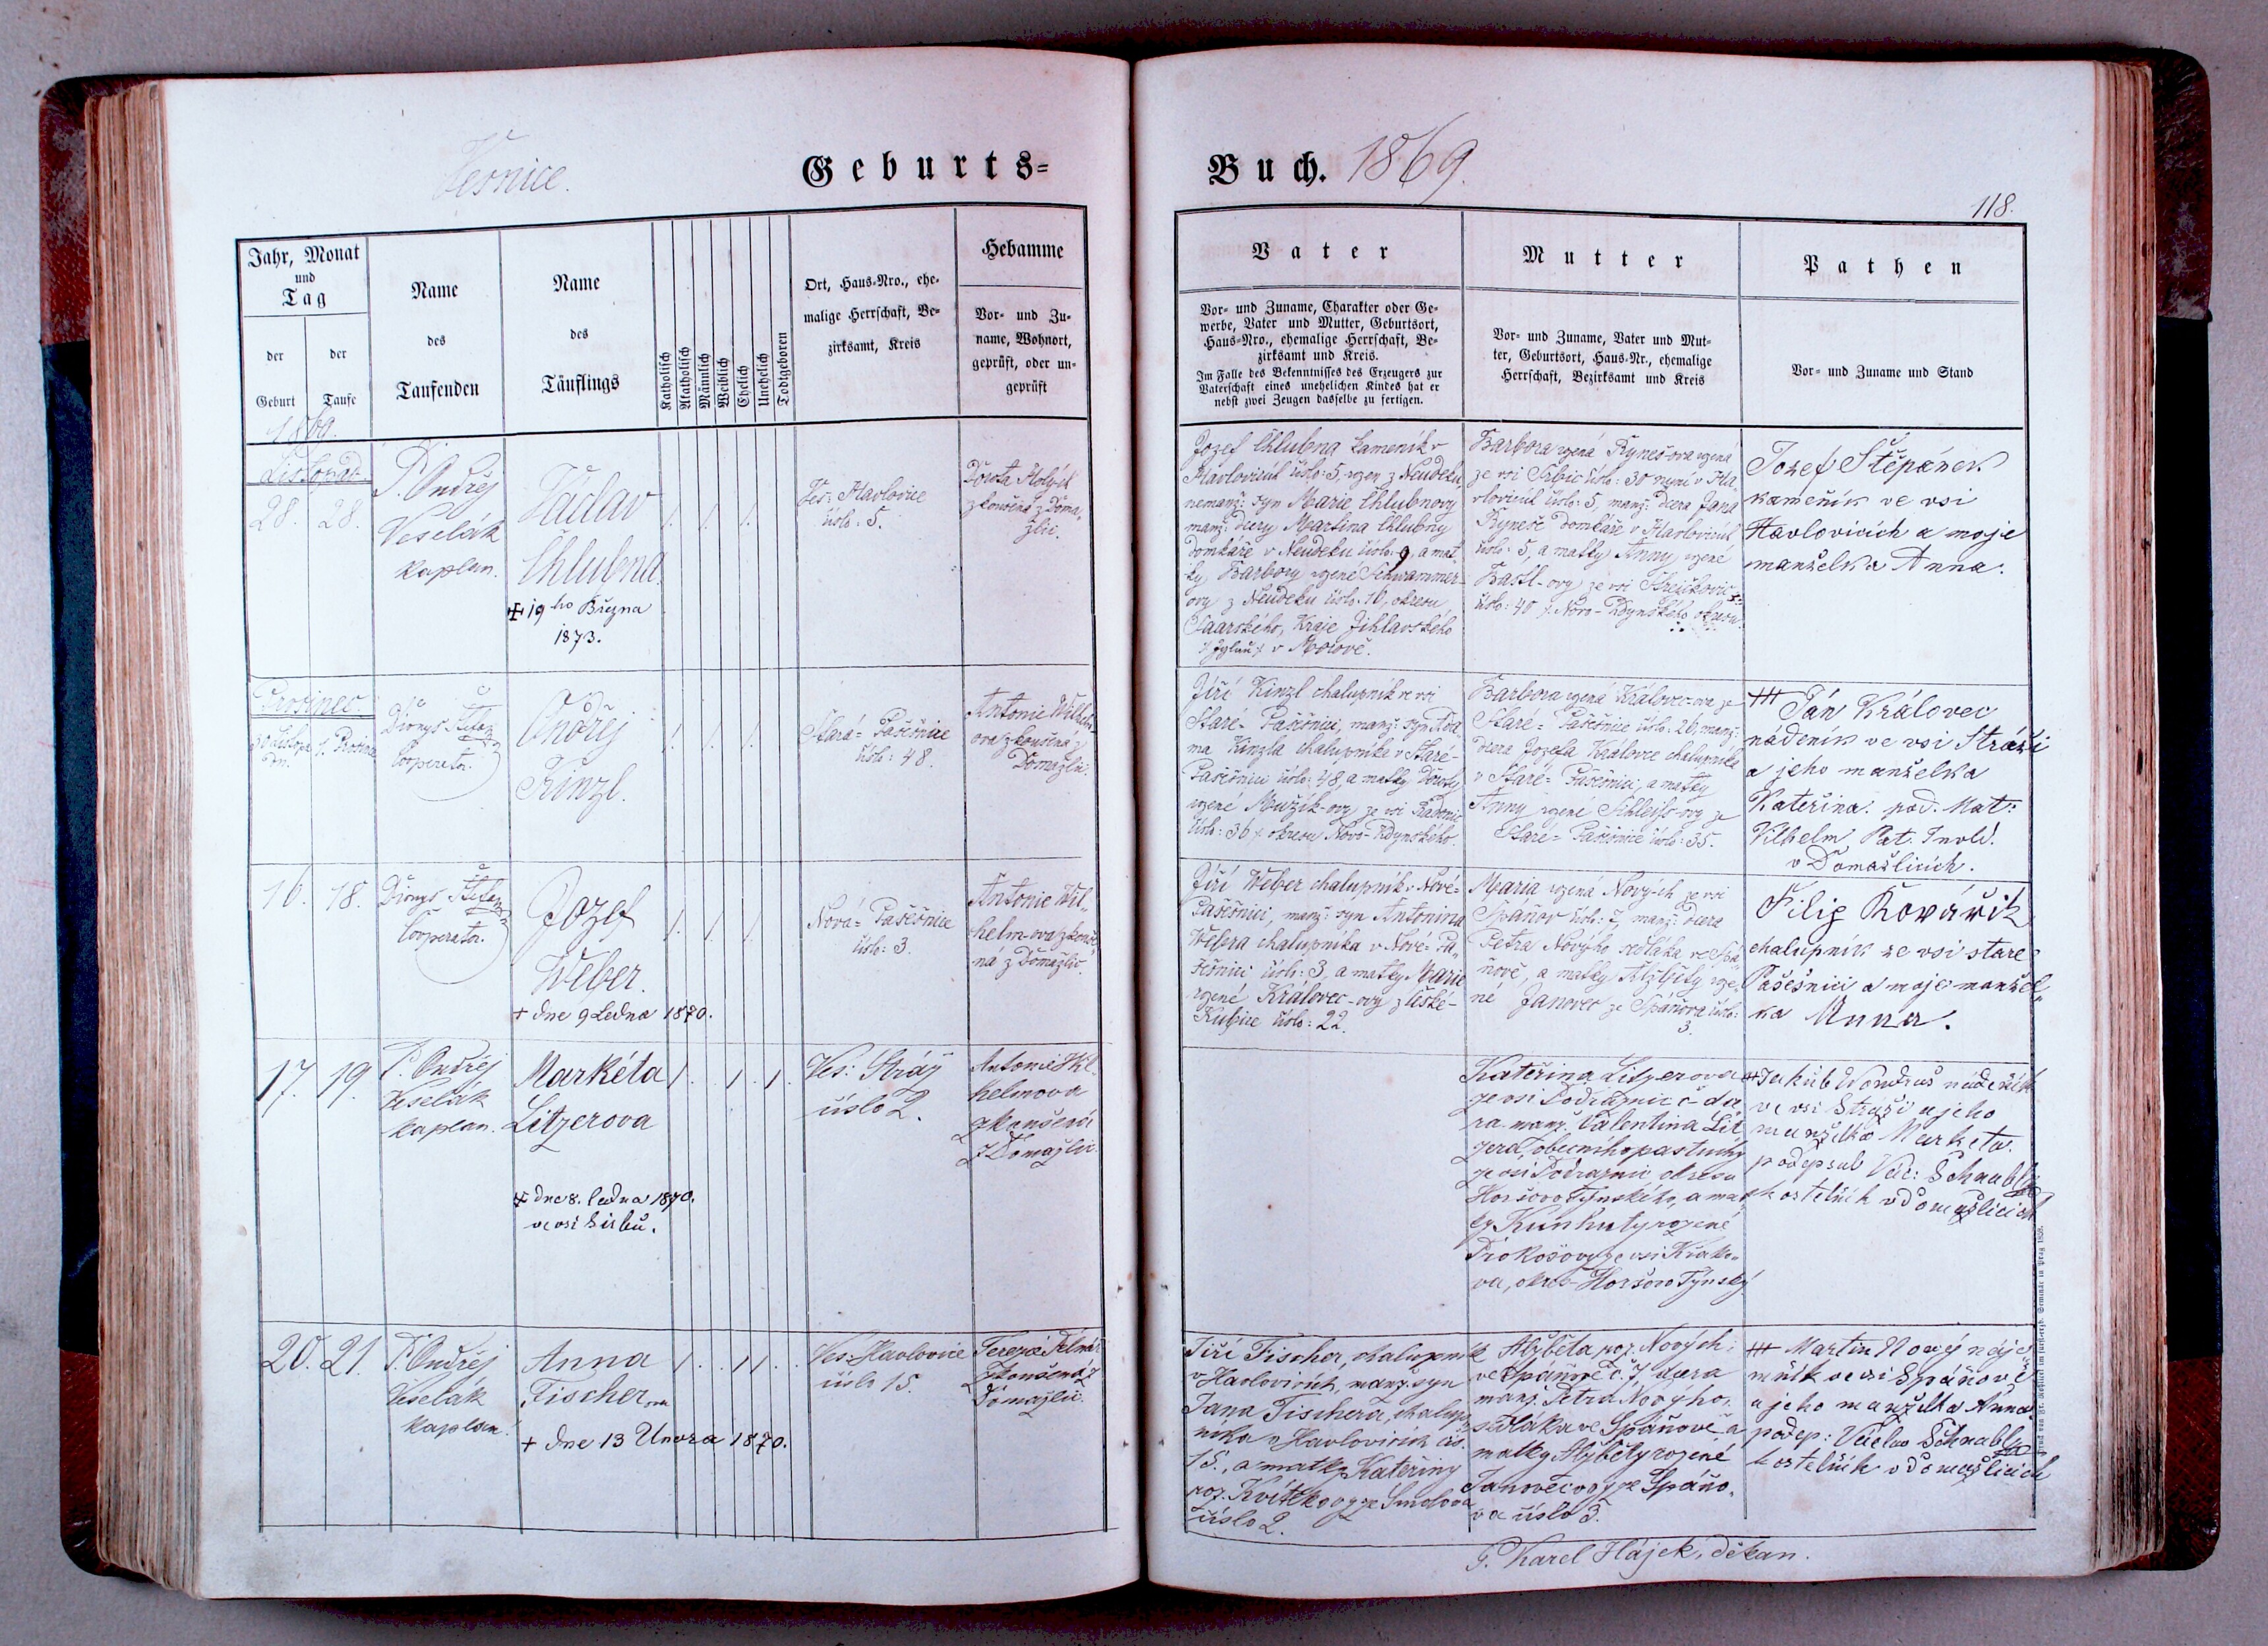 Vesnice.
Geburts=
Buch. 1869.
118.
Jahr, Monat
und
Tag
der
Geburt
der
Taufe
Name
des
Taufenden
Name
des
Täuflings
Katholisch
Akatholisch
Männlich
Weiblich
Ehelich
Unehelich
Todtgeboren
Ort, Haus-Nro., ehe-
malige Herrschaft, Be-
zirksamt, Kreis
Hebamme
Vor- und Zu-
name, Wohnort,
geprüft, oder un-
geprüft
Vater
Vor- und Zuname, Charakter oder Ge-
werbe, Vater und Mutter, Geburtsort,
Haus-Nro., ehemalige Herrschaft, Be-
zirksamt und Kreis.
Im Falle des Bekenntnisses des Erzeugers zur
Vaterschaft eines unehelichen Kindes hat er
nebst zwei Zeugen dasselbe zu fertigen.
Mutter
Vor- und Zuname, Vater und Mut-
ter, Geburtsort, Haus-Nr., ehemalige
Herrschaft, Bezirksamt und Kreis
Pathen
Vor- und Zuname und Stand
1869.
Listopad
28. 28.
P. Ondřej
Veselák
kaplan.
Václav
Chlubna
+ 19ho Března
1873.
1. 1. 1.
Ves: Havlovice
číslo: 5.
Dorota
zkoušená z Doma„
žlic.
Jozef Chlubna kameník v
Havlovicích číslo: 5, rozen z Neudeku,
nemanž: syn Marie Chlubnovy
manž: dcery Martina Chlubny
domkáře v Neudeku číslo: 9, a mat„
ky Barbory rozené Schrammer-
ovy z Neudeku číslo: 10, okresu
Saarského, Kraje Jihlavského
v Moravě.
Barbora rozená Ryneš-ova rozená
ze vsi Srbic číslo: 30 nyní v Ha„
vlovicích číslo: 5, manž: dcera Jana
Ryneše domkáře v Havlovicích
číslo: 5, a matky Anny rozené
Bastl-ovy ze vsi
číslo: 40 Novo-Kdynského okresu.
Jozef Štěpánek
kameník ve vsi
Havlovicích a moje
manželka Anna.
Prosinec.
30 Listopa
du.
1. Prosince
Dionys Štefan
Cooperator.
Ondřej
Kinzl.
1. 1. 1.
Stará=Pasečnice
číslo: 48.
Antonie Wilhelm
ova zkoušená z
Domažlic.
Jiří Kinzl chalupník ve vsi
Staré-Pasečnici, manž: syn Ada„
ma Kinzla chalupníka v Staré-
Pasečnici číslo: 48, a matky Doroty
rozené Muzik-ovy ze vsi
číslo: 36 okresu Novo-Kdynského.
Barbora rozená Královec-ova ze
Staré=Pasečnice číslo: 26, manž:
dcera Jozefa Královce chalupníka
v Staré=Pasečnici, a matky
Anny rozené Schleiss-ovy ze
Staré=Pasečnice číslo: 35.
+++ Ján Královec
nádeník ve vsi Stráži
a jeho manželka
Kateřina. pod. Mat:
Vilhelm, Pat. Invld.
v Domažlicích.
16. 18.
Dionys Štefan
Cooperator.
Jozef
Weber.
+ dne 9 Ledna 1870.
1. 1. 1.
Nová=Pasečnice
číslo: 3.
Antonie Wil„
helm-ova zkouše„
ná z Domažlic.
Jiří Weber chalupník v Nové=
Pasečnici, manž: syn Antonina
Webera chalupníka v Nové=Pa„
sečnici číslo: 3, a matky Marie
rozené Královec-ovy z České-
Kubice číslo: 22.
Maria rozená Nových ze vsi
Spáňov číslo: 7, manž: dcera
Petra Nového sedláka ve Spá„
ňově, a matky Alžběty roze„
né Janovec ze Spáňova číslo:
3.
Filip Kovářik
chalupník ze vsi staré
Pasešnici a moje manžel„
ka Anna.
17. 19.
P. Ondřej
Veselák
kaplan.
Markéta
Litzerova
+ dne 8. ledna 1870.
ve vsi
1. 1. 1.
Ves: Stráž
číslo 2.
Antonie Wil-
helmova
zkoušená
z Domažlic.
Kateřina Litzerova
ze vsi Podražnic č- dce
ra manž. Valentina Lit
zera, obecního pastucha
ze vsi Podražnic okresu
Horšovo Týnského, a mat
ky Kunhuty rozené
Prokošovy ze vsi Křako-
va, okres Horšovo Týnský
++ Jakub Wondraš nádeník
ve vsi Stráži a jeho
manželka Marketa.
podepsal Vác: Schnabl
kostelník v Domažlicích
20. 21.
P. Ondřej
Veselák
kaplan.
Anna
Fischerova
+ dne 13 Února 1870.
1. 1 1.
Ves: Havlovice
číslo 15.
Terezie
Zkoušená z
Domažlic.
Jiří Fischer, chalupník
v Havlovicích, manž. syn
Jana Fischera, chalup„
níka v Havlovicích čís.
15., a matky Kateřiny
roz. Kvítkovy ze Smolova
číslo 2.
Alžběta roz. Nových
ve Spáňově č. 7, dcera
manž. Petra Nového,
sedláka ve Spáňově a
matky Alžběty rozené
Janovecovy ze Spáňo„
va číslo 3.
+++ Martin Nový náje„
mník ve vsi Spáňově
a jeho manželka Anna.
podep: Václav Schnabl
kostelník v Domažlicích
P. Karel Hájek, děkan.